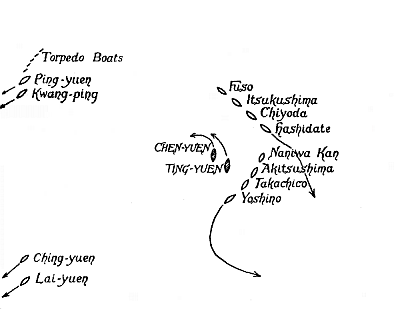 Torpedo Boats
Ping-yuen
Kwang-ping
Fuso
Itsukushima
Chiyoda
Hashidate
CHEN-YUEN
TING-YUEN
Naniwa Kan
Akitsushima
Takachico
Yoshino
Ching-yuen
Lai-yuen